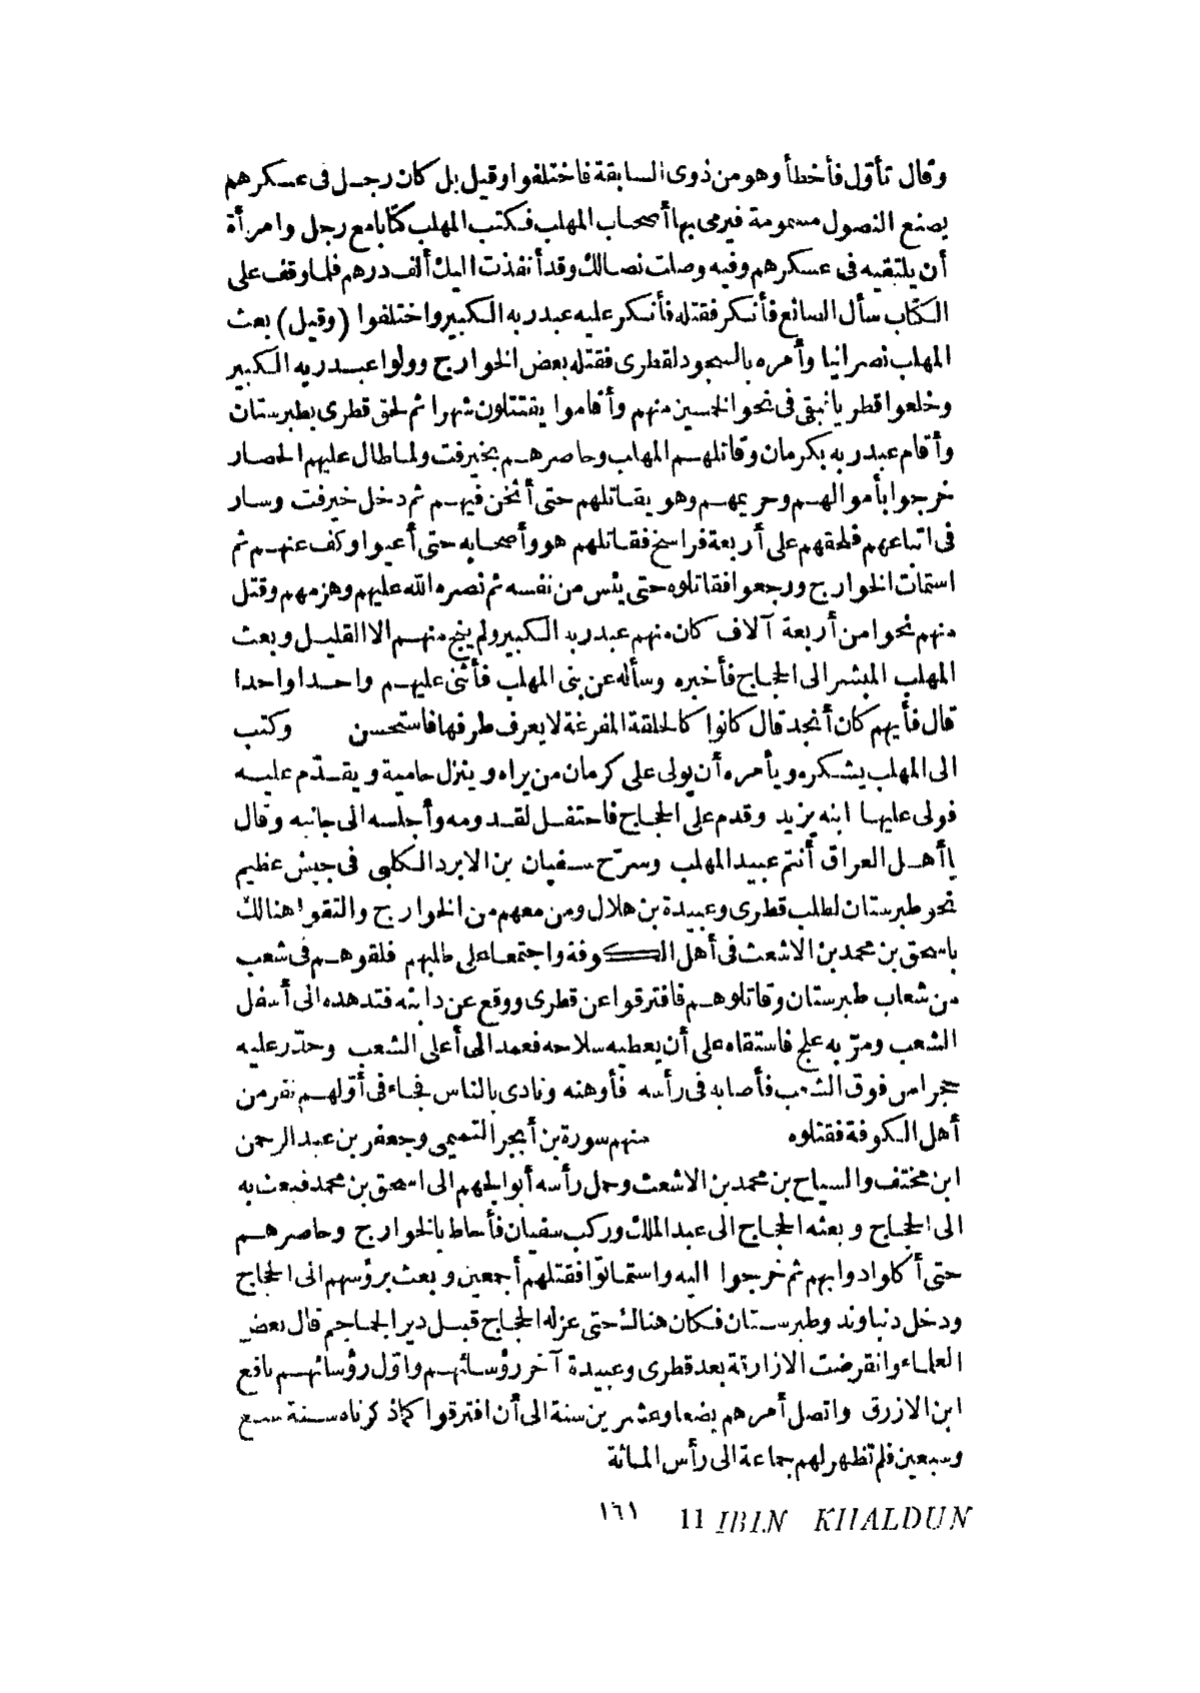 وقال تأوّل فأخطأ وهو من ذوى السابقة فاختلفوا وقيل بل كان رجل فى عسكرهم
يصنع النصول مسمومة فيرمى بها أصحاب المهلب فكتب المهلب كتابا مع رجل وامرأة
أن يلتقيه فى عسكرهم وفيه وصلت نصالك وقد أنفذت اليك ألف درهم فلما وقف على
الكتاب سأل الصانع فأنكر فقتله فأنكر عليه عبدربه الكبير واختلفوا (وقيل) بعث
المهلب نصرانيا وأمره بالسجود لقطرى فقتله بعض الخوارج وولوا عبدربه الكبير
وخلعوا قطريا فبقى فى نحو الخمسين منهم وأقاموا يقتتلون شهرا ثم لحق قطرى بطبرستان
وأقام عبدربه بكرمان وقاتلهم المهلب وحاصرهم بخيرفت ولما طال عليهم الحصار
خرجوا بأموالهم وحريمهم وهو يقاتلهم حتى أثخن فيهم ثم دخل خيرفت وسار
فى اتباعهم فلحقهم على أربعة فراسخ فقاتلهم هو وأصحابه حتى أعيوا وكف عنهم ثم
استمات الخوارج ورجعوا فقاتلوه حتى يئس من نفسه ثم نصره الله عليهم وهزمهم وقتل
منهم نحوا من أربعة آلاف كان منهم عبدربه الكبير ولم ينج منهم الا القليل وبعث
المهلب المبشر الى الحجاج فأخبره وسأله عن بنى المهلب فأثنى عليهم واحدا واحدا
قال فأيهم كان أنجد قال كانوا كالحلقة المفرغة لا يعرف طرفها فاستحسن وكتب
الى المهلب يشكره ويأمره أن يولى على كرمان من يراه وينزل حامية ويقدّم عليه
فولى عليها ابنه يزيد وقدم على الحجاج فاحتفل لقدومه وأجلسه الى جانبه وقال
يا أهل العراق أنتم عبيد المهلب وسرّح سفيان بن الابرد الكلبى فى جيش عظيم
نحو طبرستان لطلب قطرى وعبيدة بن هلال ومن معهم من الخوارج والتقوا هنالك
باسحق بن محمد بن الاشعث فى أهل الكوفة واجتمعا على طلبهم فلقوهم فى شعب
من شعاب طبرستان وقاتلوهم فافترقوا عن قطرى ووقع عن دابته فتدهده الى أسفل
الشعب ومرّ به علج فاستقاه على أن يعطيه سلاحه فعمد الى أعلى الشعب وحدّر عليه
حجرا من فوق الشعب فأصابه فى رأسه فأوهنه ونادى بالناس فجاء فى أوّلهم نفر من
أهل الكوفة فقتلوه منهم سورة بن أبجر التميمى وجعفر بن عبد الرحمن
ابن مخنف والسياح بن محمد بن الاشعث وحمل رأسه أبو الجهم الى اسحق بن محمد فبعث به
الى الحجاج وبعثه الحجاج الى عبد الملك وركب سفيان فأحاط بالخوارج وحاصرهم
حتى أكلوا دوابهم ثم خرجوا اليه واستماتوا فقتلهم أجمعين وبعث برؤسهم الى الحجاج
ودخل دنباوند وطبرستان فكان هنالك حتى عزله الحجاج قبل دير الجماجم قال بعض
العلماء وانقرضت الازارقة بعد قطرى وعبيدة آخر رؤسائهم وأوّل رؤسائهم نافع
ابن الازرق واتصل أمرهم بضعا وعشرين سنة الى أن افترقوا كما ذكرناه سنة سبع
وسبعين فلم تظهر لهم جماعة الى رأس المائة
١٦١ 11 IBIN KHALDUN